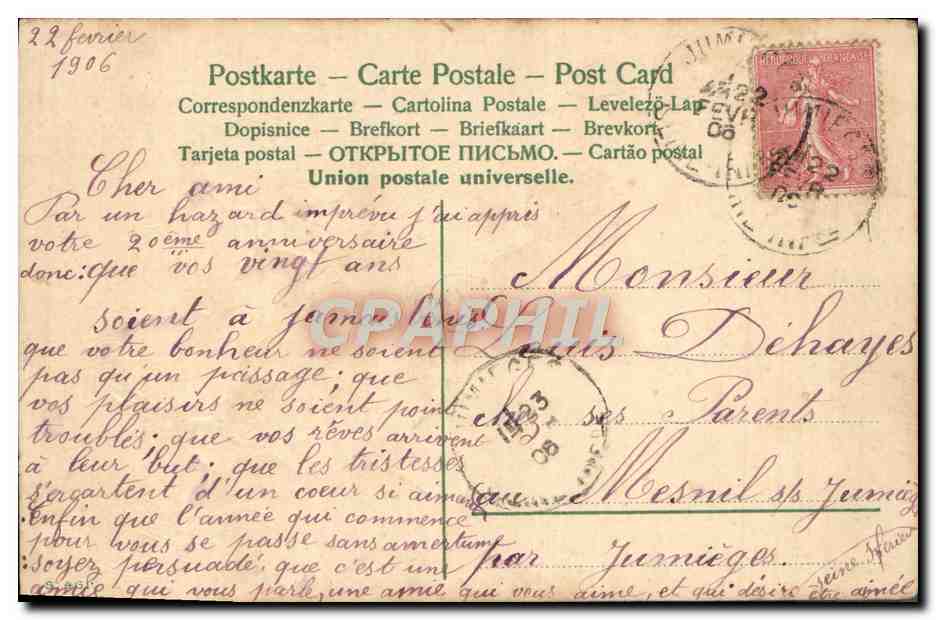 22 fevrier
1906
Postkarte – Carte Postale – Post Card
Correspondenzkarte – Cartolina Postale – Levelezö-Lap
Dopisnice – Brefkort – Briefkaart – Brevkort
Tarjeta postal – ОТКРЫТОЕ ПИСЬМО. – Cartão postal
Union postale universelle.
Cher ami
Par un hazard imprévu j'ai appris
votre 20ème anniversaire
donc: que vos vingt ans
soient à jamais
que votre bonheur ne soient
pas qu'un passage; que
vos plaisirs ne soient point
troublés; que vos rêves arrivent
à leur but; que les tristesses
s'ergartent d'un coeur si aimant
enfin que l'année qui commence
pour vous se passe sans amertume
soyez persuadé que c'est une
amie qui vous parle, une amie qui vous aime, et qui désire être aimée
Monsieur
Louis Déhayes
chez ses Parents
au Mesnil s/s Jumièges
par Jumièges.
seine inférieure
CPAPHIL
22
FEVR
06
22
23
06